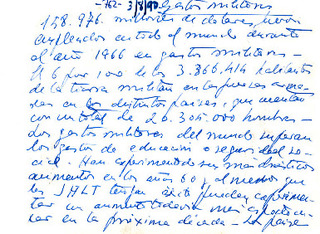 -762- 3/8/90 Gastos militares
158.976. millones de dolares, fueron
empleados en todo el mundo durante
el año 1966 en gastos militares -
El 6 por 100 de los 3.366,414 habitantes
de la tierra militan en las fuerzas
en los distintos países, que cuentan
con un total de 26.305.000 hombres -
Los gastos militares del mundo superan
los gastos de educación o seguridad so-
cial - Han experimentado sus mas drásticos
aumentos en los años 60 y al menos que
las SALT tengan éxito pueden experimen-
tar un aumento todavía más espectacu-
lar en la próxima década -